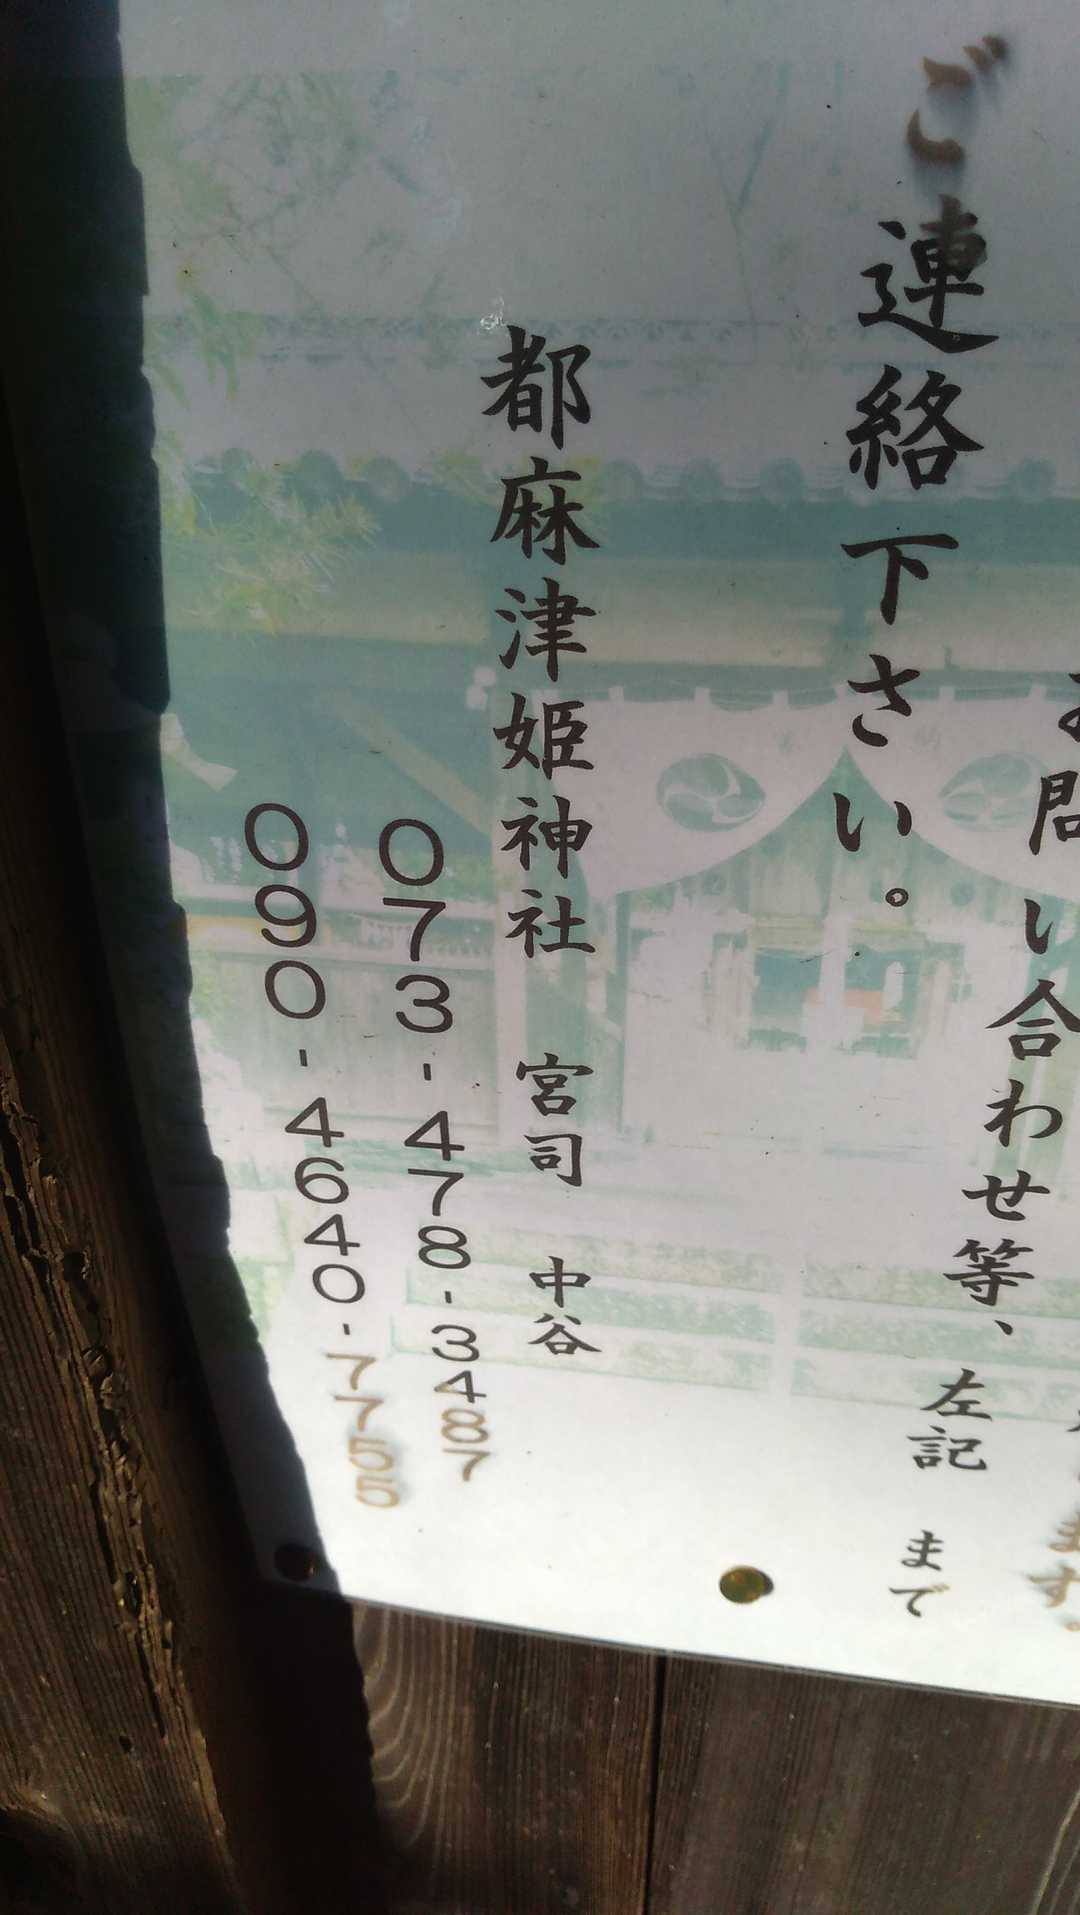 お問い合わせ等、左記まで
ご連絡下さい。
都麻津姫神社 宮司 中谷
073-478-3487
090-4640-7755